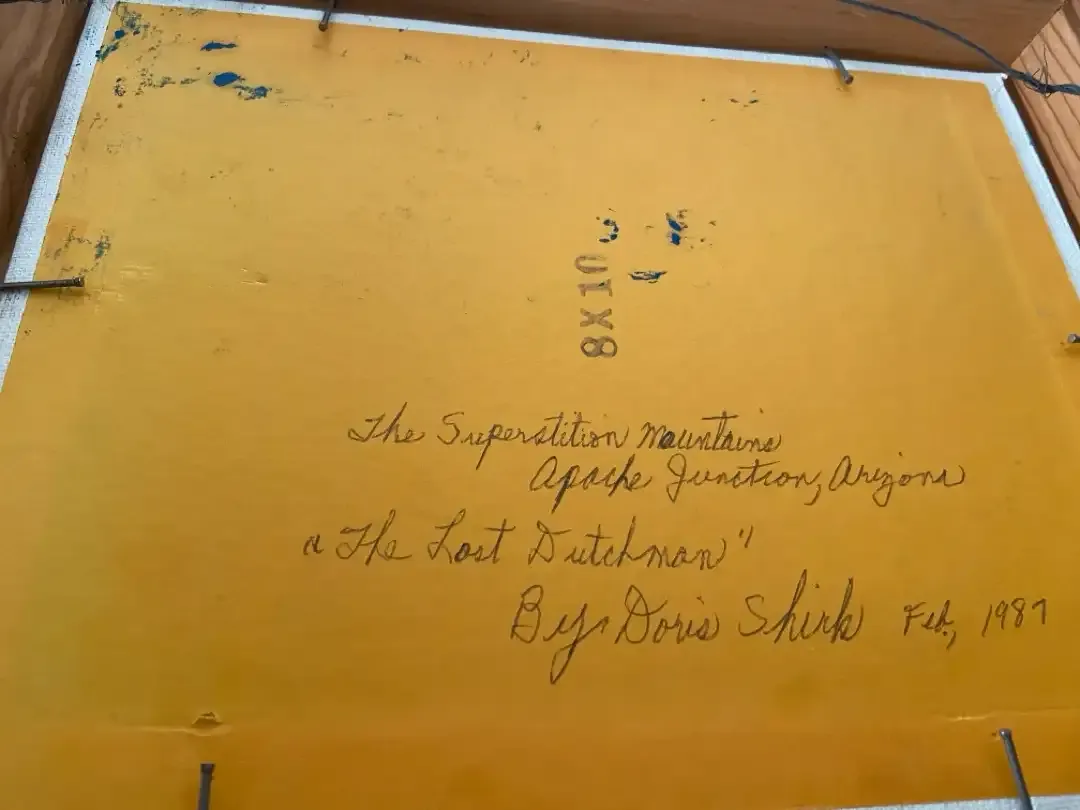 8X10
The Superstition Mountains
Apache Junction, Arizona
"The Lost Dutchman"
By: Doris Shirk Feb, 1987